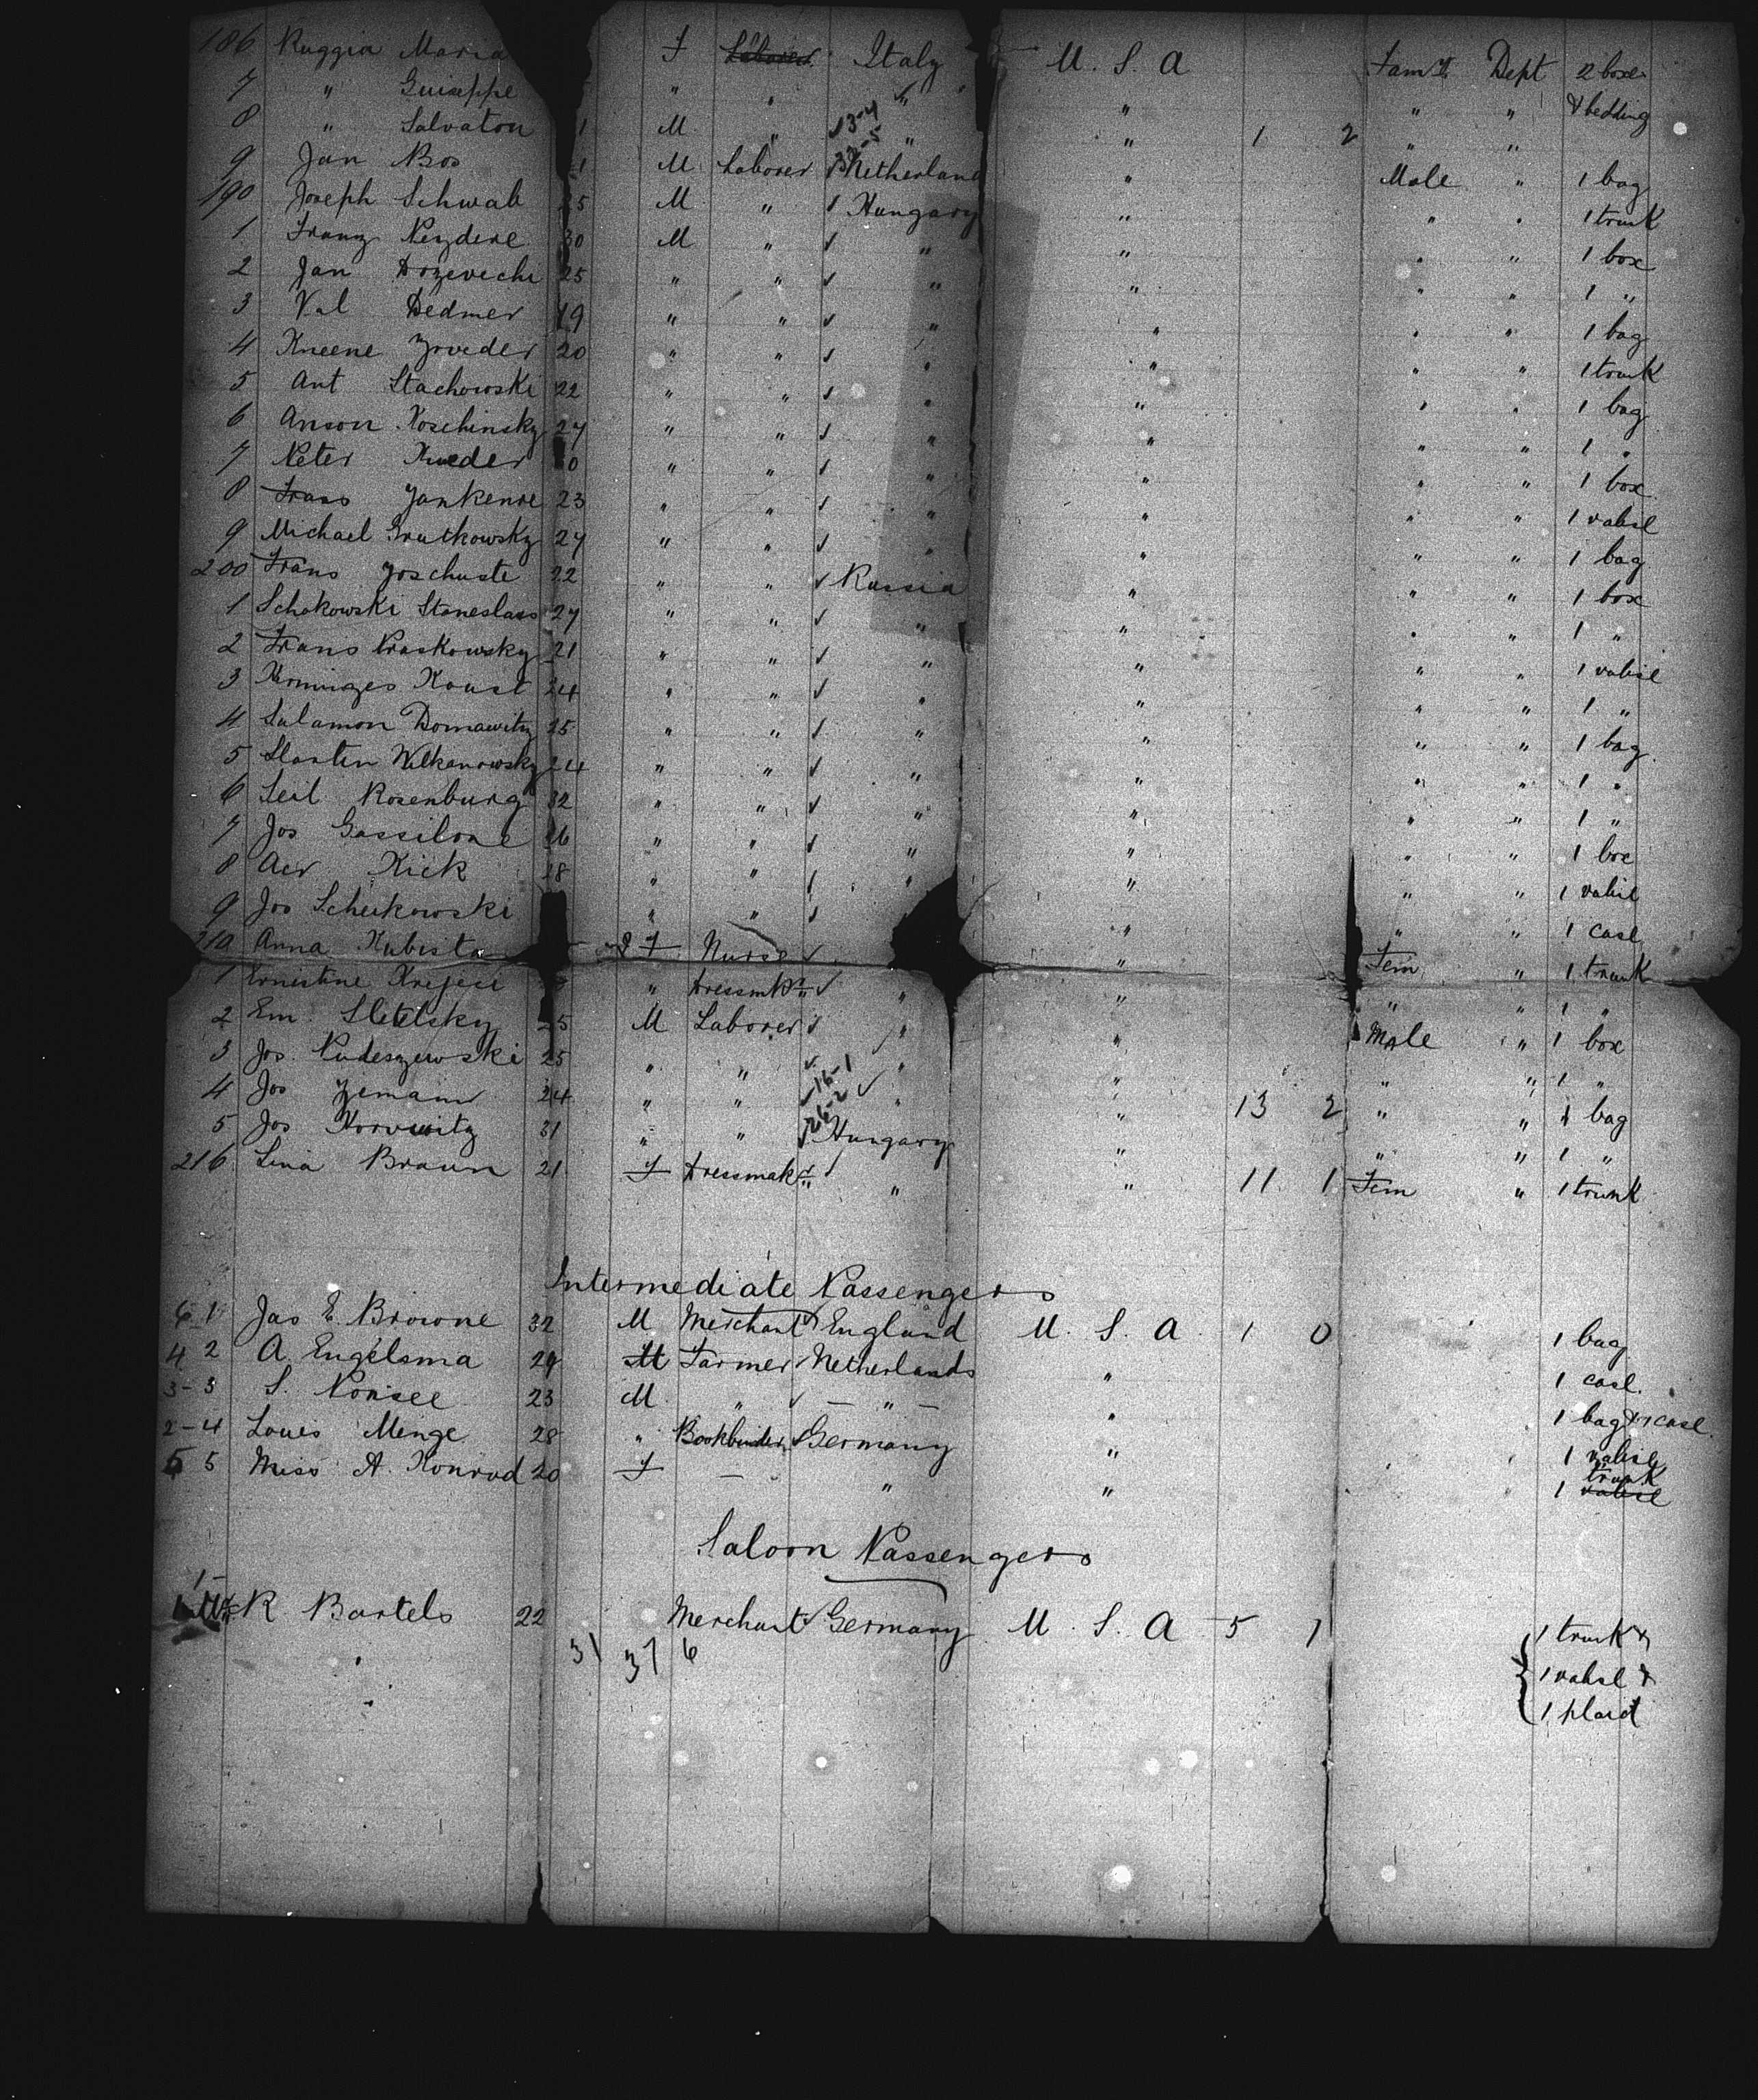 186 Ruggia Maria F ~~Laborer~~ Italy U. S. A Fam'l Dept 2 boxes
7 " Guiseppe " " " " " " & bedding
8 " Salvaton 1 M " 13-4 " " 1 2 " "
9 Jan Bos M Laborer Netherland " Male " 1 bag
190 Joseph Schwab 25 M " Hungary " " " 1 trunk
1 Franz 30 M " " " " " 1 box
2 Jan 25 " " " " " " 1 "
3 Val Dedmer 19 " " " " " " 1 bag
4 Kneene 20 " " " " " " 1 trunk
5 Ant Stachowski 22 " " " " " " 1 bag
6 Anson Koschinsky 27 " " " " " " 1 "
7 Peter " " " " " " 1 box
8 Frans Jankenre 23 " " " " " " 1 valise
9 Michael Grutkowsky 27 " " " " " " 1 bag
200 Frans Joschuste 22 " " Russia " " " 1 box
1 Schakowski Staneslaus 27 " " " " " " 1 "
2 Frans Praskowsky 21 " " " " " " 1 valise
3 Koust 24 " " " " " " 1 "
4 Salamon Domawitz 25 " " " " " " 1 bag
5 Wilkanowsky 24 " " " " " " 1 "
6 Leil Rosenburg 32 " " " " " " 1 "
7 Jos Gassilone 26 " " " " " " 1 box
8 Kick 28 " " " " " " 1 valise
9 Jos Scheikowski " " " " " 1 case
210 Anna Kubista F Nurse " Fem " 1 trunk
1 Ernestine Krejesi " Dressmkr " " " " 1 "
2 Em. Sletsky 25 M Laborer " " Male " 1 box
3 Jos. Pudeszewski 25 " " " " " " 1 "
4 Jos Zemann 24 " " 16-1 " " 13 2 " " 1 bag
5 Jos Horwitz 31 " " 26-2 Hungary " " " 1 "
216 Lina Braun 21 F Dressmakr " " 11 1 Fem " 1 trunk
Intermediate Passengers
6 1 Jas E. Browne 32 M Merchant England U. S. A. 1 0 1 bag
4 2 A. Engelsma 29 M Farmer Netherlands " 1 case
3-3 S. 23 M " - " - " 1 bag & 1 case
2-4 Louis Minge 28 " Bookbinder Germany " 1 valise
5 5 Miss A. Konrad 20 F - " " 1 ~~valise~~ trunk
Saloon Passengers
1 R. Bartels 22 Merchant Germany U. S. A 5 1 1 trunk &
31 37 6
1 valise &
1 plaid